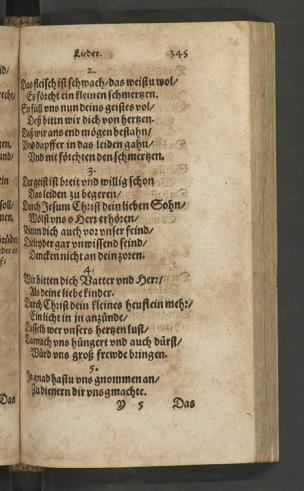 Lieder. 345
2.
Das fleisch ist schwach/das weistu wol/
Es förcht ein kleinen schmertzen.
So füll vns nun deins geistes vol/
Deß bittn wir dich von hertzen.
Daß wir ans end mögen bestahn/
Vnd dapffer in das leiden gahn/
Vnd nit förchten den schmertzen.
3.
Der geist ist breit vnd willig schon
Das leiden zu begeren/
Durch Jesum Christ dein lieben Sohn/
Wölst vns o Herr erhören/
dich auch vor vnser feind/
gar vnwissend seind/
Dencken nicht an dein zoren.
4.
Wir bitten dich Vatter vnd Herr/
Als deine liebe kinder.
Durch Christ dein kleines heuflein mehr/
Ein licht in jn anzünde/
Dasselb wer vnsers hertzen lust/
Darnach vns hüngert vnd auch dürst/
Würd vns groß frewde bringen.
5.
In gnad hastu vns gnommen an/
Zu dienern dir vns gmachte.
Y 5 Das